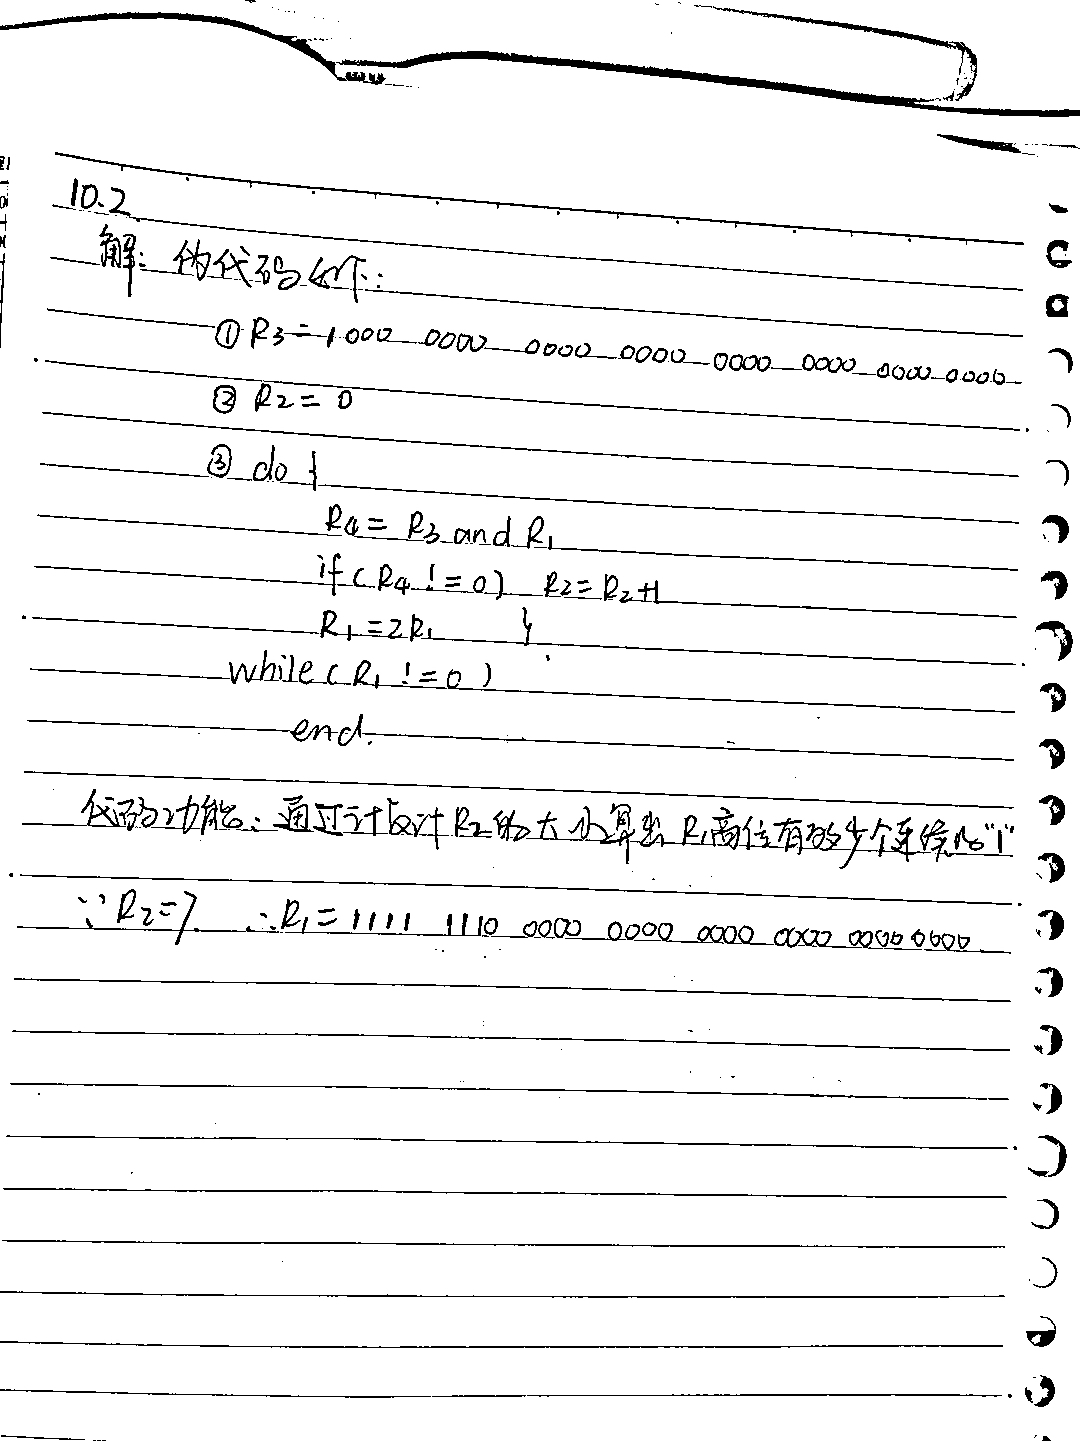 10.2
解: 伪代码如下:
① R3 = 1000 0000 0000 0000 0000 0000 0000 0000
② R2 = 0
③ do {
R4 = R3 and R1
if (R4 != 0) R2 = R2+1
R1 = 2R1 }
while (R1 != 0)
end.
代码功能: 通过计 R2的大小算出 R1高位有多少个连续的"1"
∵ R2=7 ∴ R1 = 1111 1110 0000 0000 0000 0000 0000 0000